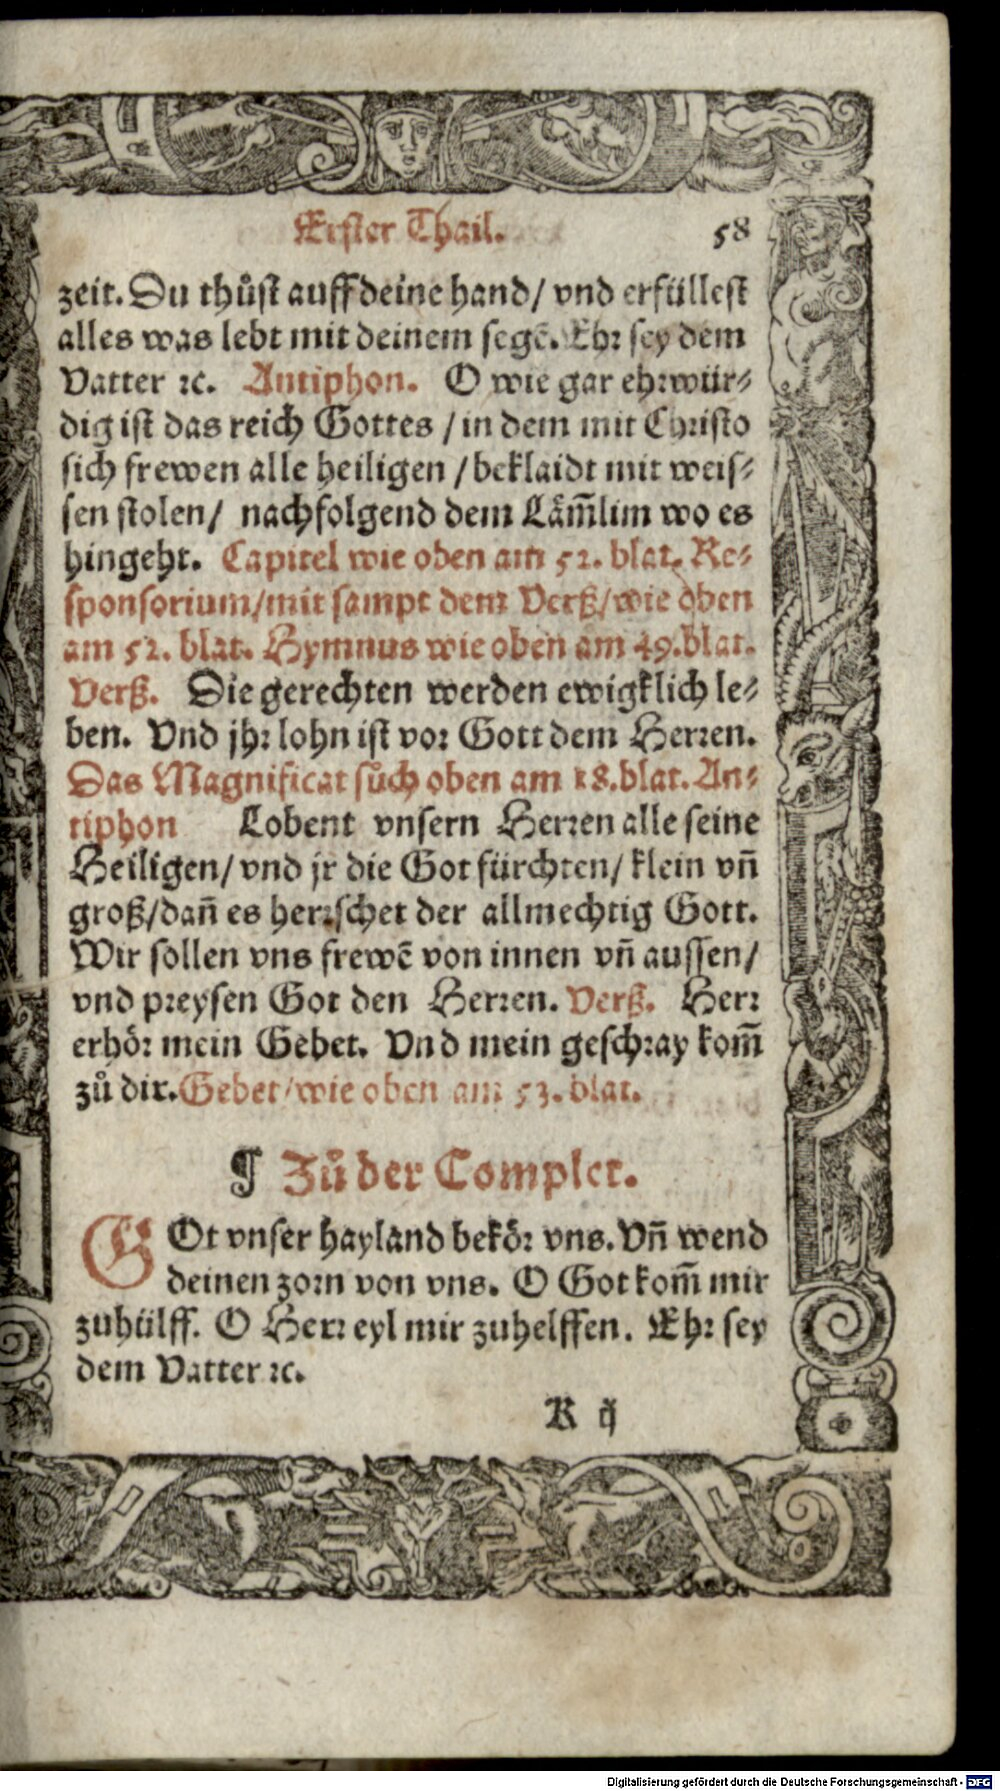 Erster Thail. 58
zeit. Du thůst auff deine hand / vnd erfüllest
alles was lebt mit deinem segẽ. Ehr sey dem
Vatter ꝛc. Antiphon. O wie gar ehrwür⸗
dig ist das reich Gottes / in dem mit Christo
sich frewen alle heiligen / beklaidt mit weis⸗
sen stolen / nachfolgend dem Läm̃lim wo es
hingeht. Capitel wie oben am 52. blat. Re⸗
sponsorium / mit sampt dem Verß / wie oben
am 52. blat. Hymnus wie oben am 49. blat.
Verß. Die gerechten werden ewigklich le⸗
ben. Vnd jhr lohn ist vor Gott dem Herren.
Das Magnificat sůch oben am 18. blat. An⸗
tiphon Lobent vnsern Herren alle seine
Heiligen / vnd jr die Got fürchten / klein vñ
groß / dañ es herrschet der allmechtig Gott.
Wir sollen vns frewẽ von innen vñ aussen /
vnd preysen Got den Herren. Verß. Herr
erhör mein Gebet. Vnd mein geschray kom̃
zů dir. Gebet / wie oben am 53. blat.
¶ Zů der Complet.
GOt vnser hayland bekör vns. Vñ wend
deinen zorn von vns. O Got kom̃ mir
zuhülff. O Herr eyl mir zuhelffen. Ehr sey
dem Vatter ꝛc.
K ij
Digitalisierung gefördert durch die Deutsche Forschungsgemeinschaft - DFG